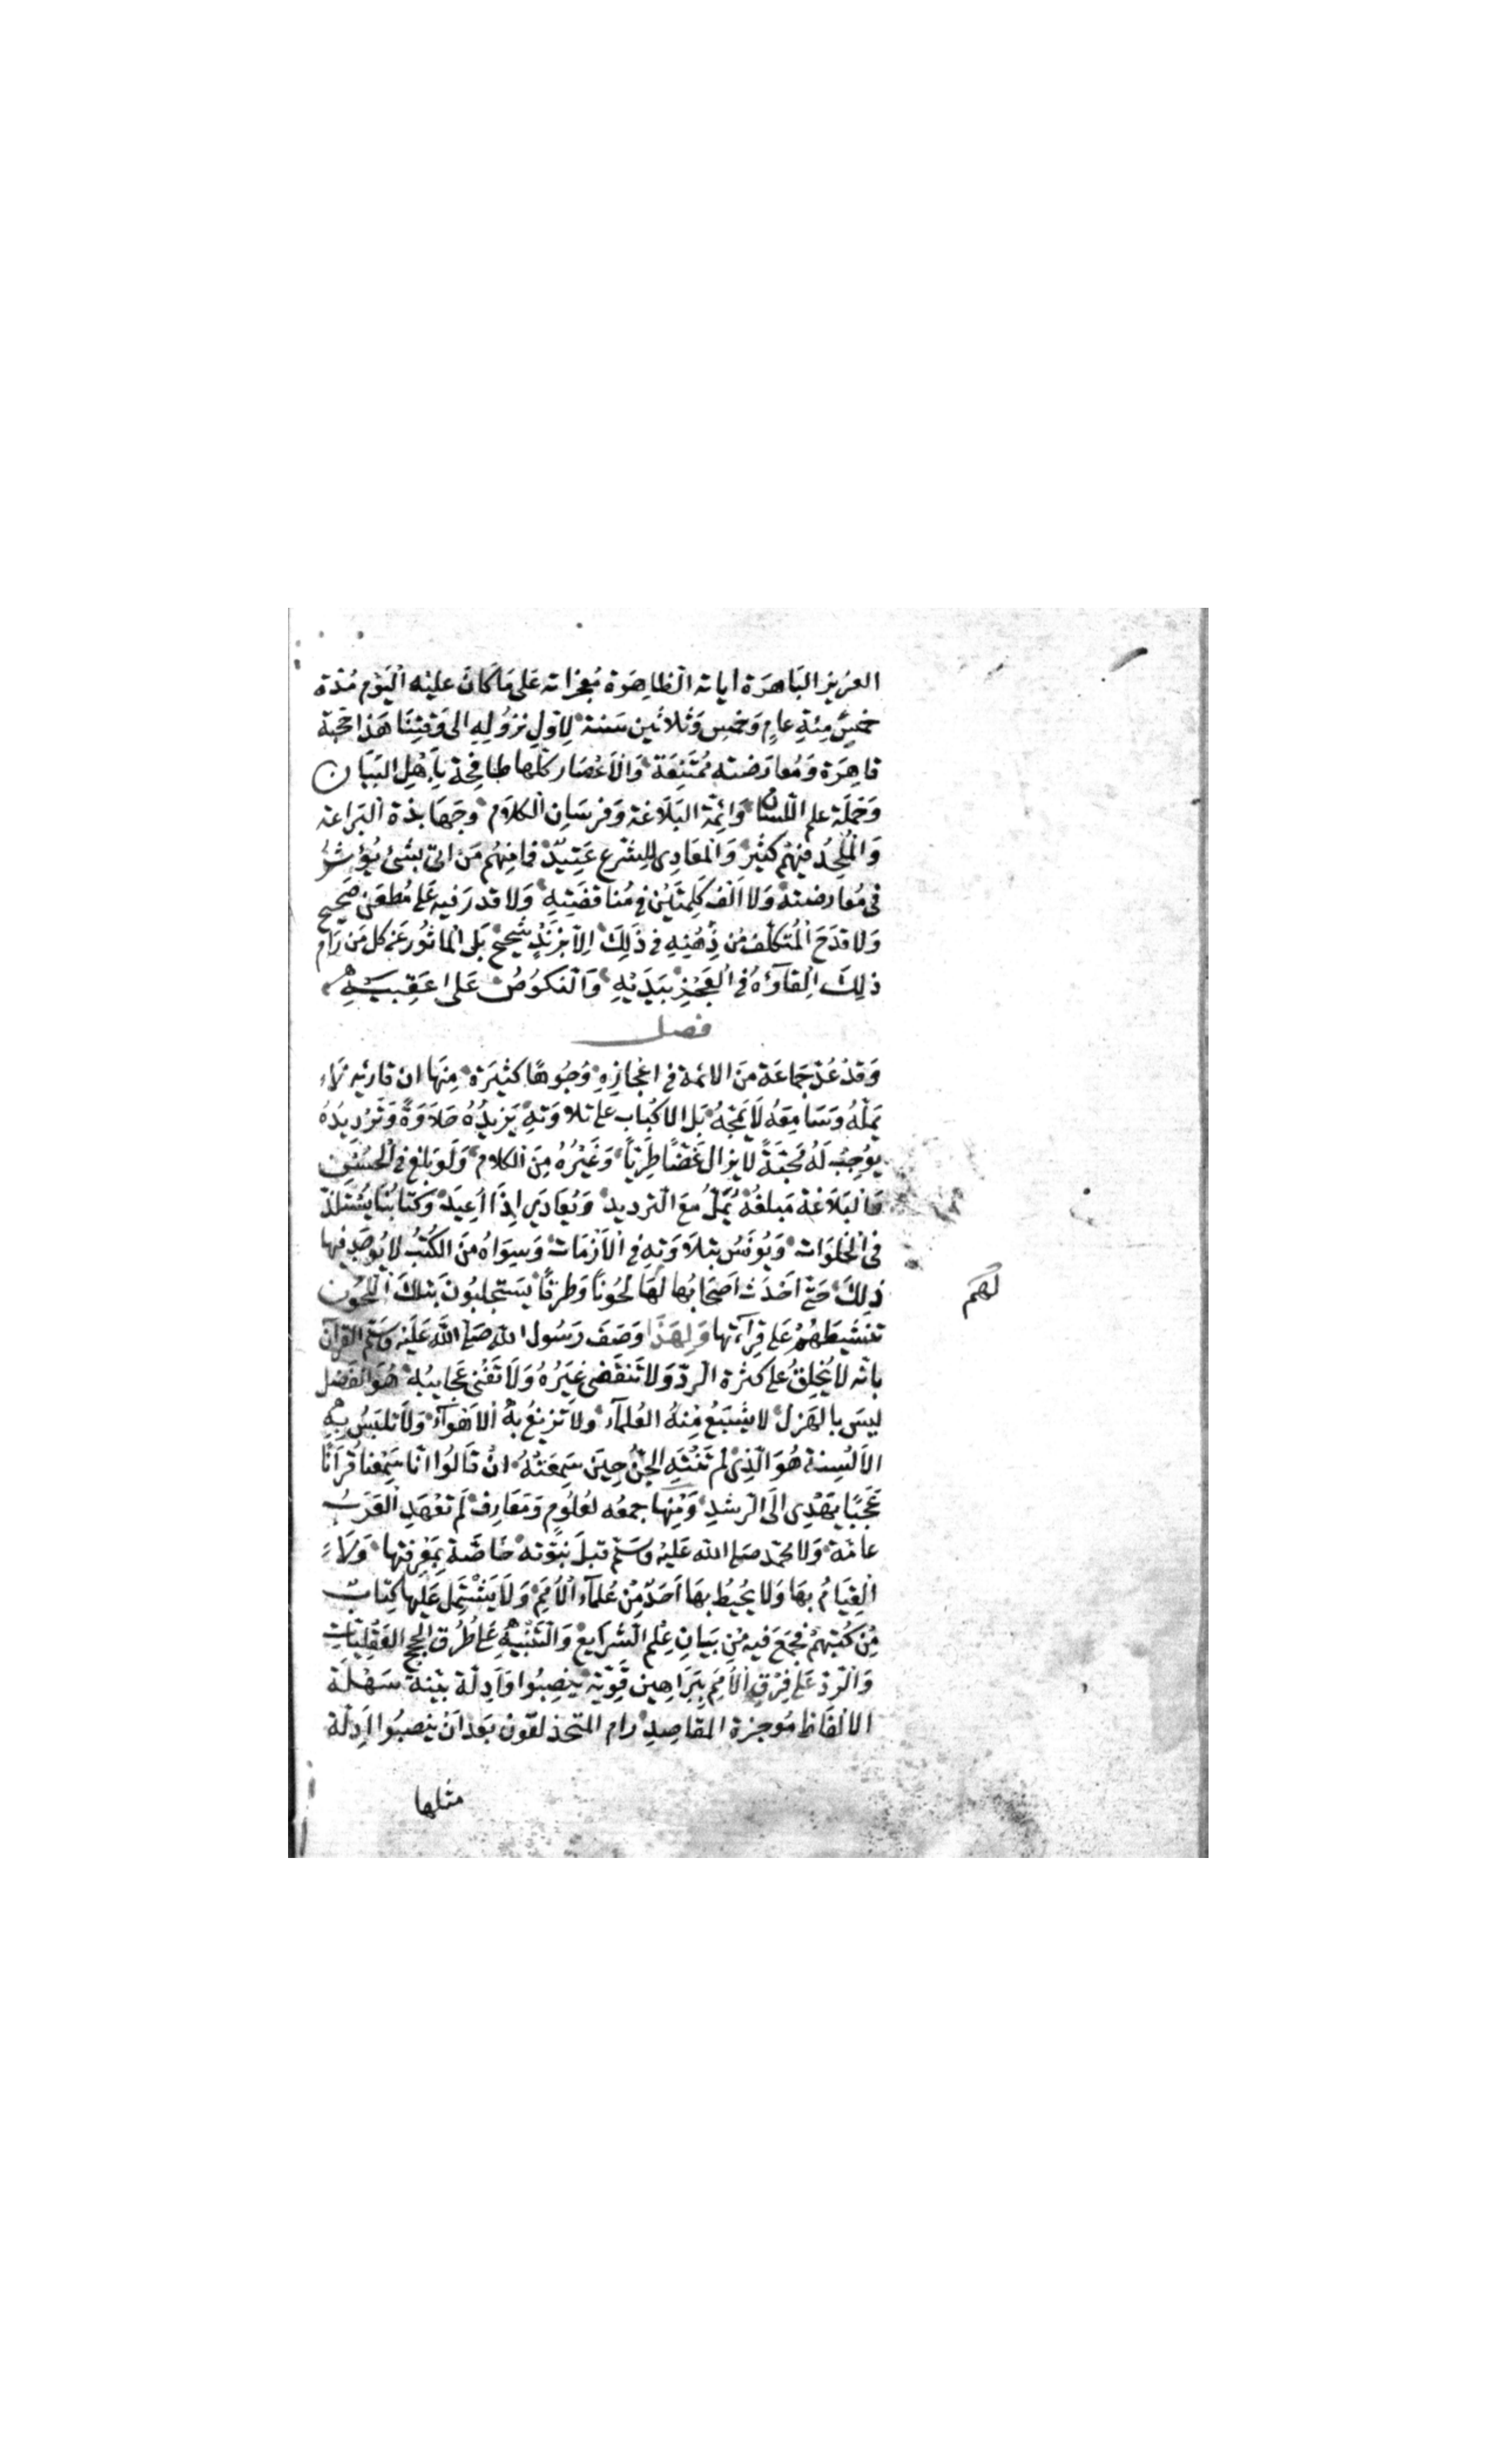 العزيز الباهرة اياته الظاهرة معجزاته على ما كان عليه اليوم مدة
خمس مئة عام وخمس وثلاثين سنة لاول نزوله الى وقتنا هذا حجته
قاهرة ومعارضته ممتنعة والاعصار كلها طافحة باهل البيان
وحملة علم اللسان وائمة البلاغة وفرسان الكلام وجهابذة البراعة
والملحد فيهم كثير والمعادى للشرع عتيد فما منهم من اتى بشئ يؤثر
فى معارضته ولا الف كلمتين فى مناقضته ولا قدر فيه على مطعن صحيح
ولا قدح المتكلف من ذهنه فى ذلك الا بزند شحيح بل الماثور عن كل من رام
ذلك القاؤه فى العجز بيديه والنكوص على عقبيه
فصل
وقد عد جماعة من الائمة فى اعجازه وجوها كثيرة منها ان قارئه لا
يمله وسامعه لا يمجه بل الاكباب على تلاوته يزيده حلاوة وترديده
يوجب له محبة لا يزال غضا طريا وغيره من الكلام ولو بلغ فى الحسن
والبلاغة مبلغه يمل مع الترديد ويعادى اذا اعيد وكتابنا يستلذ
فى الخلوات ويونس بتلاوته فى الازمات وسواه من الكتب لا يوجد فيها
ذلك حتى احدث اصحابها لها لحونا وطرقا يستجلبون بتلك اللحون
تنشيطهم على قرآءتها ولهذا وصف رسول الله صلى الله عليه وسلم القرآن
بانه لا يخلق على كثرة الرد ولا تنقضى عبره ولا تفنى عجايبه هو الفصل
ليس بالهزل لا يشبع منه العلمآء ولا تزيغ به الاهوآء ولا تلتبس به
الالسنة هو الذى لم تنته الجن حين سمعته ان قالوا انا سمعنا قرآنا
عجبا يهدى الى الرشد ومنها جمعه لعلوم ومعارف لم تعهد العرب
عامة ولا محمد صلى الله عليه وسلم قبل نبوته خاصة بمعرفتها ولا
القيام بها ولا يحيط بها احد من علمآء الامم ولا يشتمل عليها كتاب
من كتبهم فجمع فيه من بيان علم الشرايع والتنبيه على طرق الحجج العقليات
والرد على فرق الامم ببراهين قوية ينصبوا وادلة بينة سهلة
الالفاظ موجزة المقاصد رام المتحذلقون بعد ان ينصبوا ادلة
مثلها
لهم